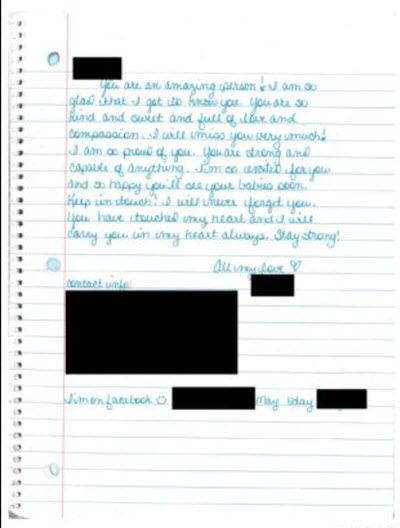 You are an amazing person! I am so
glad that I got to know you. You are so
kind and sweet and full of love and
compassion. I will miss you very much!
I am so proud of you. You are strong and
capable of anything. I'm so excited for you
and so happy you'll see your babies soon.
Keep in touch! I will never forget you.
You have touched my heart and I will
carry you in my heart always. Stay strong!
All my love ♡
contact info:
I'm on facebook ☺ May